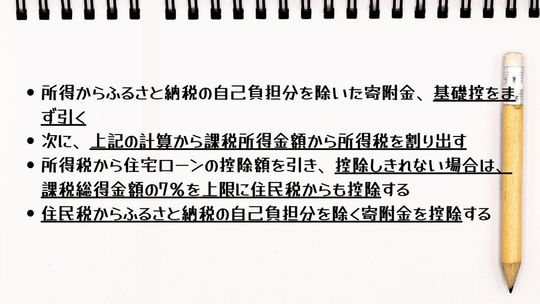 • 所得からふるさと納税の自己負担分を除いた寄附金、基礎控をま
ず引く
• 次に、上記の計算から課税所得金額から所得税を割り出す
• 所得税から住宅ローンの控除額を引き、控除しきれない場合は、
課税総得金額の7%を上限に住民税からも控除する
• 住民税からふるさと納税の自己負担分を除く寄附金を控除する